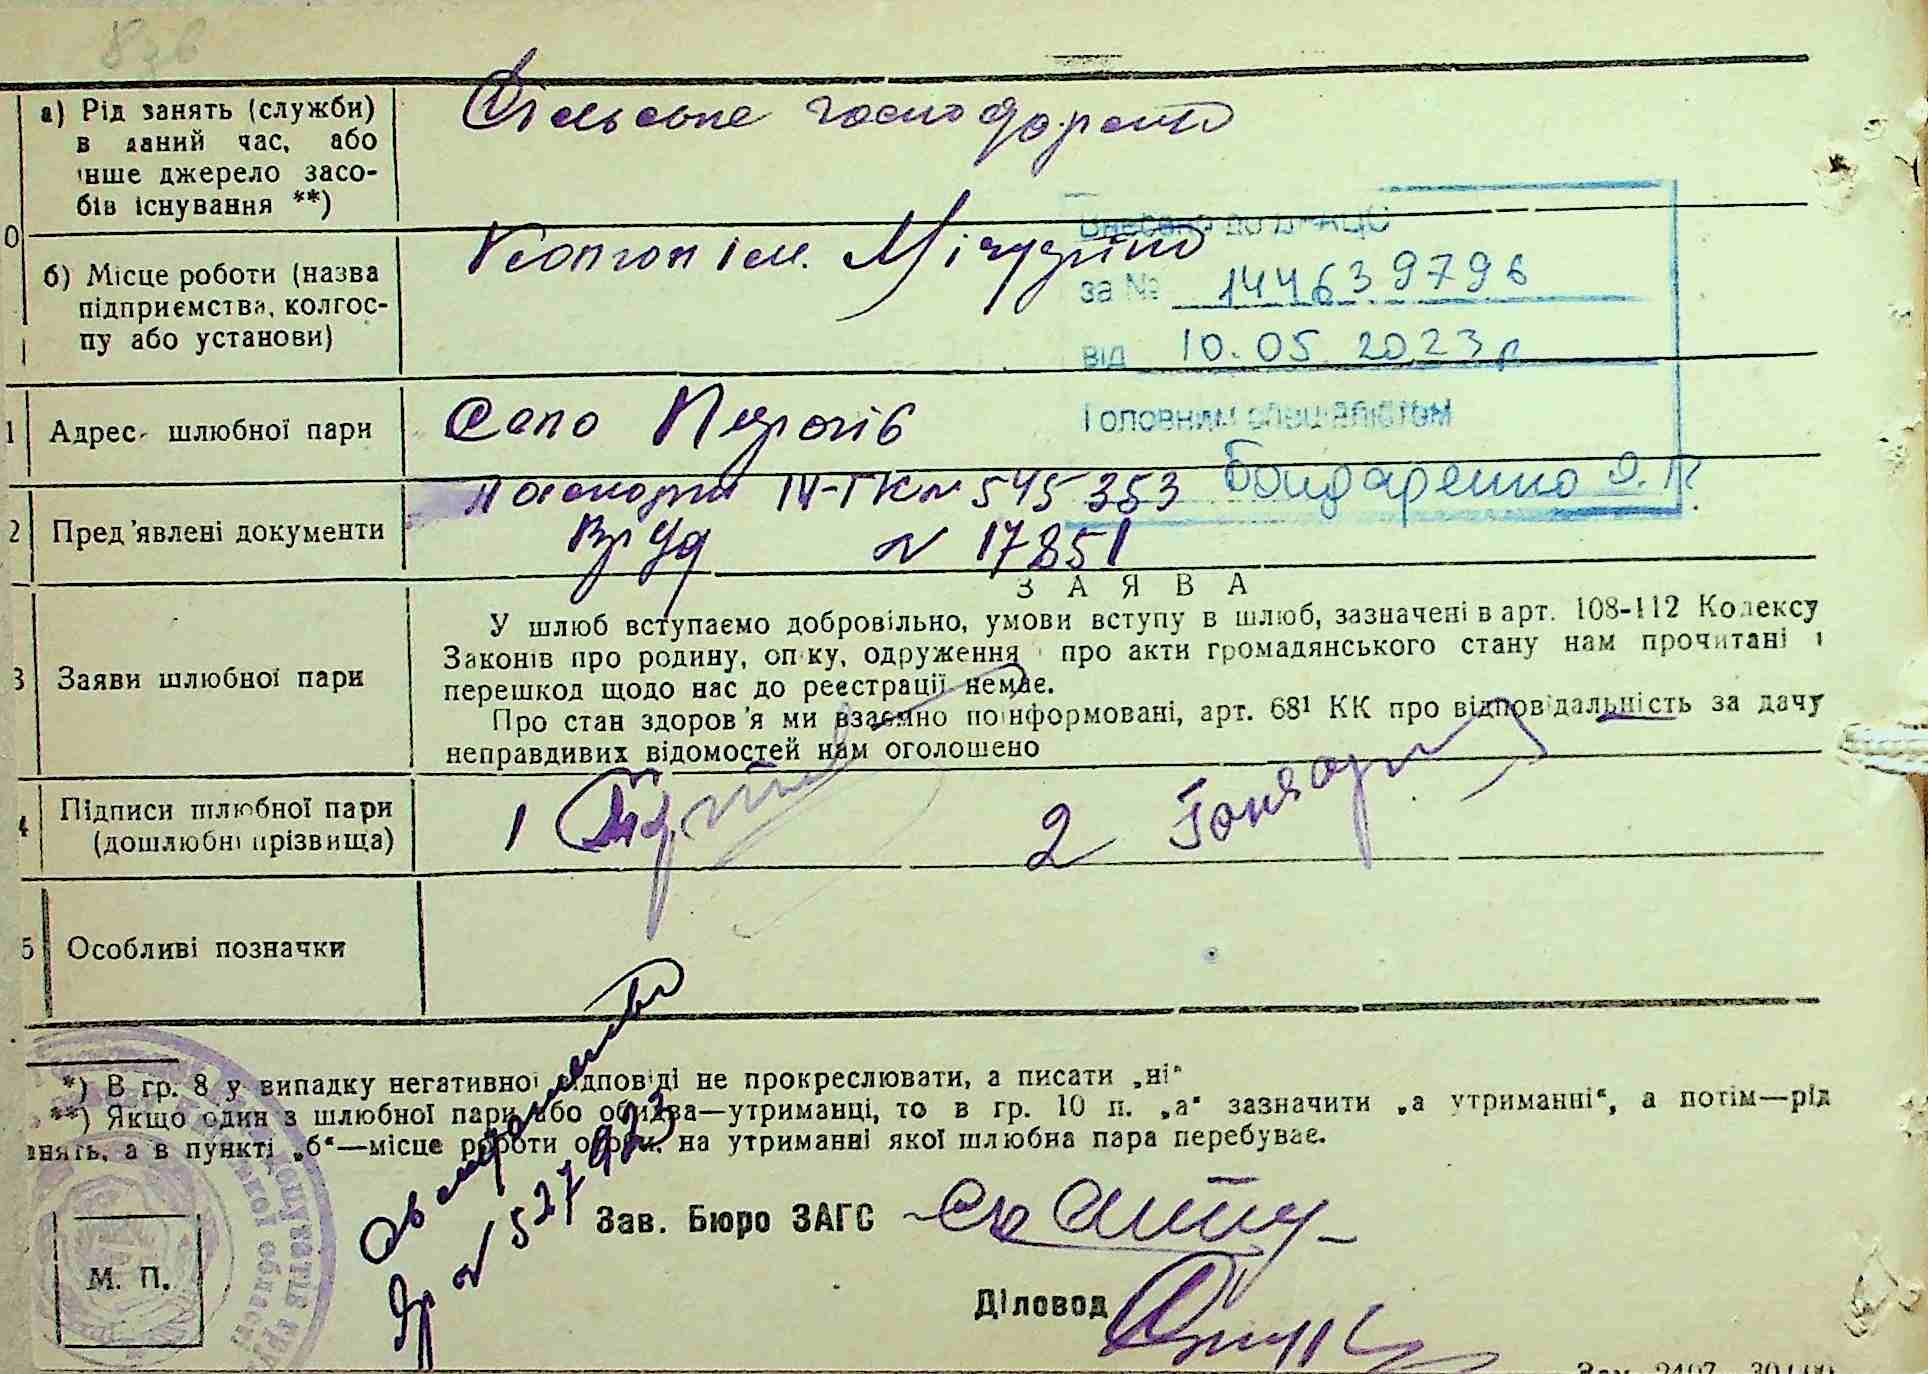 а) Рід занять (служби)
в даний час, або
інше джерело засо-
бів існування **)
Сільське господарство
0
б) Місце роботи (назва
підприємства, колгос-
пу або установи)
Колгосп ім. Мічуріна
Внесено до ДРАЦС
за № 144639796
від 10.05.2023 р
Головним спеціалістом
Бондаренко
1 Адрес шлюбної пари
Село Пирогів
2 Пред'явлені документи
паспорти IV-ГК № 545353
№ 17851
З А Я В А
3 Заяви шлюбної пари
У шлюб вступаємо добровільно, умови вступу в шлюб, зазначені в арт. 108-112 Кодексу
Законів про родину, опіку, одруження і про акти громадянського стану нам прочитані і
перешкод щодо нас до реєстрації немає.
Про стан здоров'я ми взаємно поінформовані, арт. 68¹ КК про відповідальність за дачу
неправдивих відомостей нам оголошено
4 Підписи шлюбної пари
(дошлюбні прізвища)
1
2 Гончарук
5 Особливі позначки
*) В гр. 8 у випадку негативної відповіді не прокреслювати, а писати „ні“
**) Якщо один з шлюбної пари або обидва—утриманці, то в гр. 10 п. „а“ зазначити „а утриманні“, а потім—рід
занять, а в пункті „б“—місце роботи особи, на утриманні якої шлюбна пара перебуває.
№ 527923
Зав. Бюро ЗАГС
М. П.
Діловод
Зам. 2407